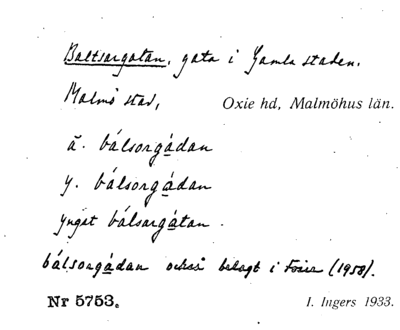 Baltsargatan, gata i Gamla staden.
Malmö stad, Oxie hd, Malmöhus län.
ä. bálsorgádan
y. bálsorgádan
yngst bálsargátan.
bálsorgádan också belagt i Fosie (1958).
Nr 5753. I. Ingers 1933.